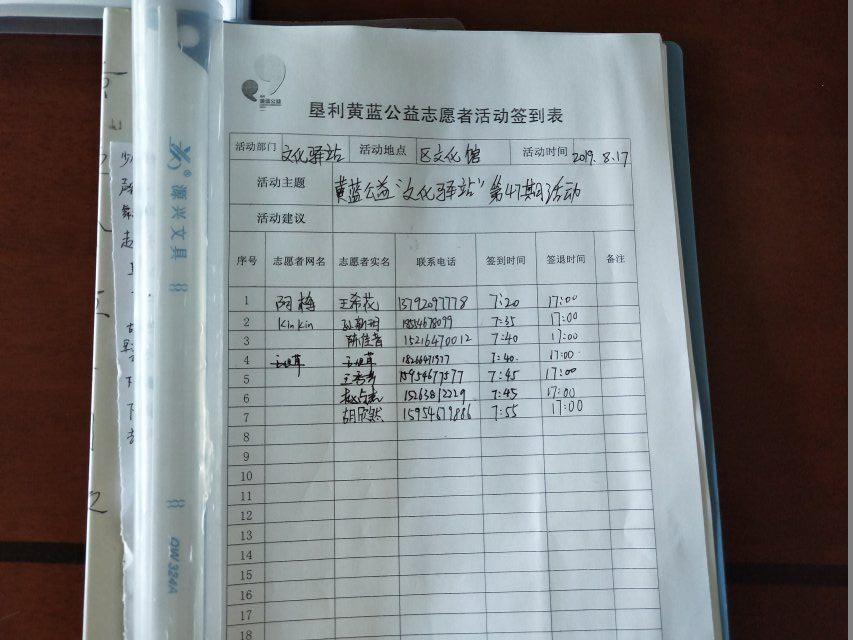 黄蓝公益
垦利黄蓝公益志愿者活动签到表
活动部门 文化驿站 活动地点 区文化馆 活动时间 2019.8.17
活动主题 黄蓝公益“文化驿站”第47期活动
活动建议
序号 志愿者网名 志愿者实名 联系电话 签到时间 签退时间 备注
1 阿梅 王希花 13792097778 7:20 17:00
2 KinKin 18554678099 7:35 17:00
3 15216470012 7:40 17:00
4 7:40 17:00
5 15954677577 7:45 17:00
6 7:45 17:00
7 胡欣然 15954679886 7:55 17:00
8
9
10
11
12
13
14
15
16
17
18
源兴文具
QW324A